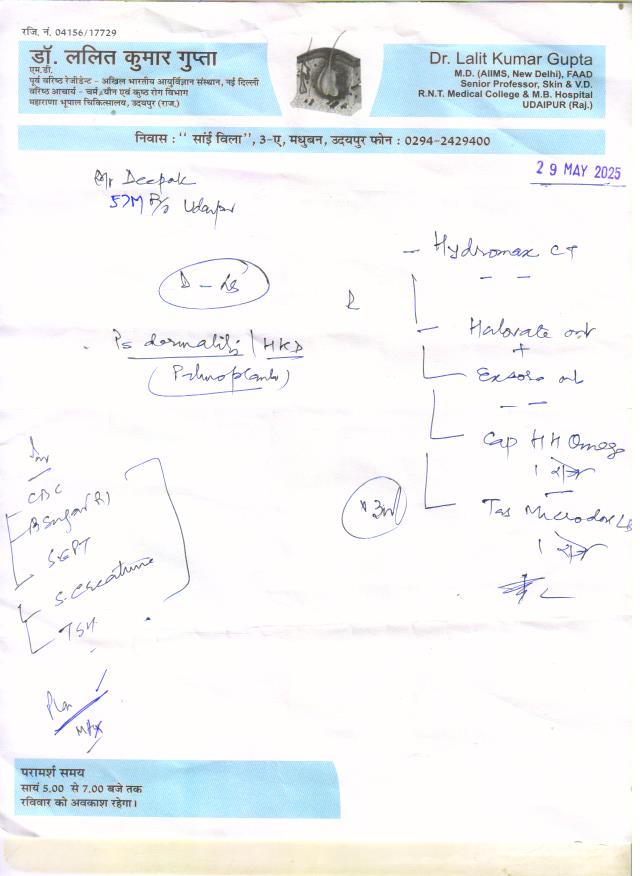 रजि. नं. 04156/17729
डॉ. ललित कुमार गुप्ता
एम.डी.
पूर्व वरिष्ठ रेजीडेन्ट - अखिल भारतीय आयुर्विज्ञान संस्थान, नई दिल्ली
वरिष्ठ आचार्य - चर्म, यौन एवं कुष्ठ रोग विभाग
महाराणा भूपाल चिकित्सालय, उदयपुर (राज.)
Dr. Lalit Kumar Gupta
M.D. (AIIMS, New Delhi), FAAD
Senior Professor, Skin & V.D.
R.N.T. Medical College & M.B. Hospital
UDAIPUR (Raj.)
निवास : '' सांई विला'', ३-ए, मधुबन, उदयपुर फोन : 0294-2429400
29 MAY 2025
Mr Deepak
57M
Hydromax
Halovate
+
Cap HH Omega
1
Tab
1
Ps dermatitis / HKD
CBC
B Sugar (R)
SGPT
S. Creatinine
TSH
Plan
परामर्श समय
सायं 5.00 से 7.00 बजे तक
रविवार को अवकाश रहेगा।